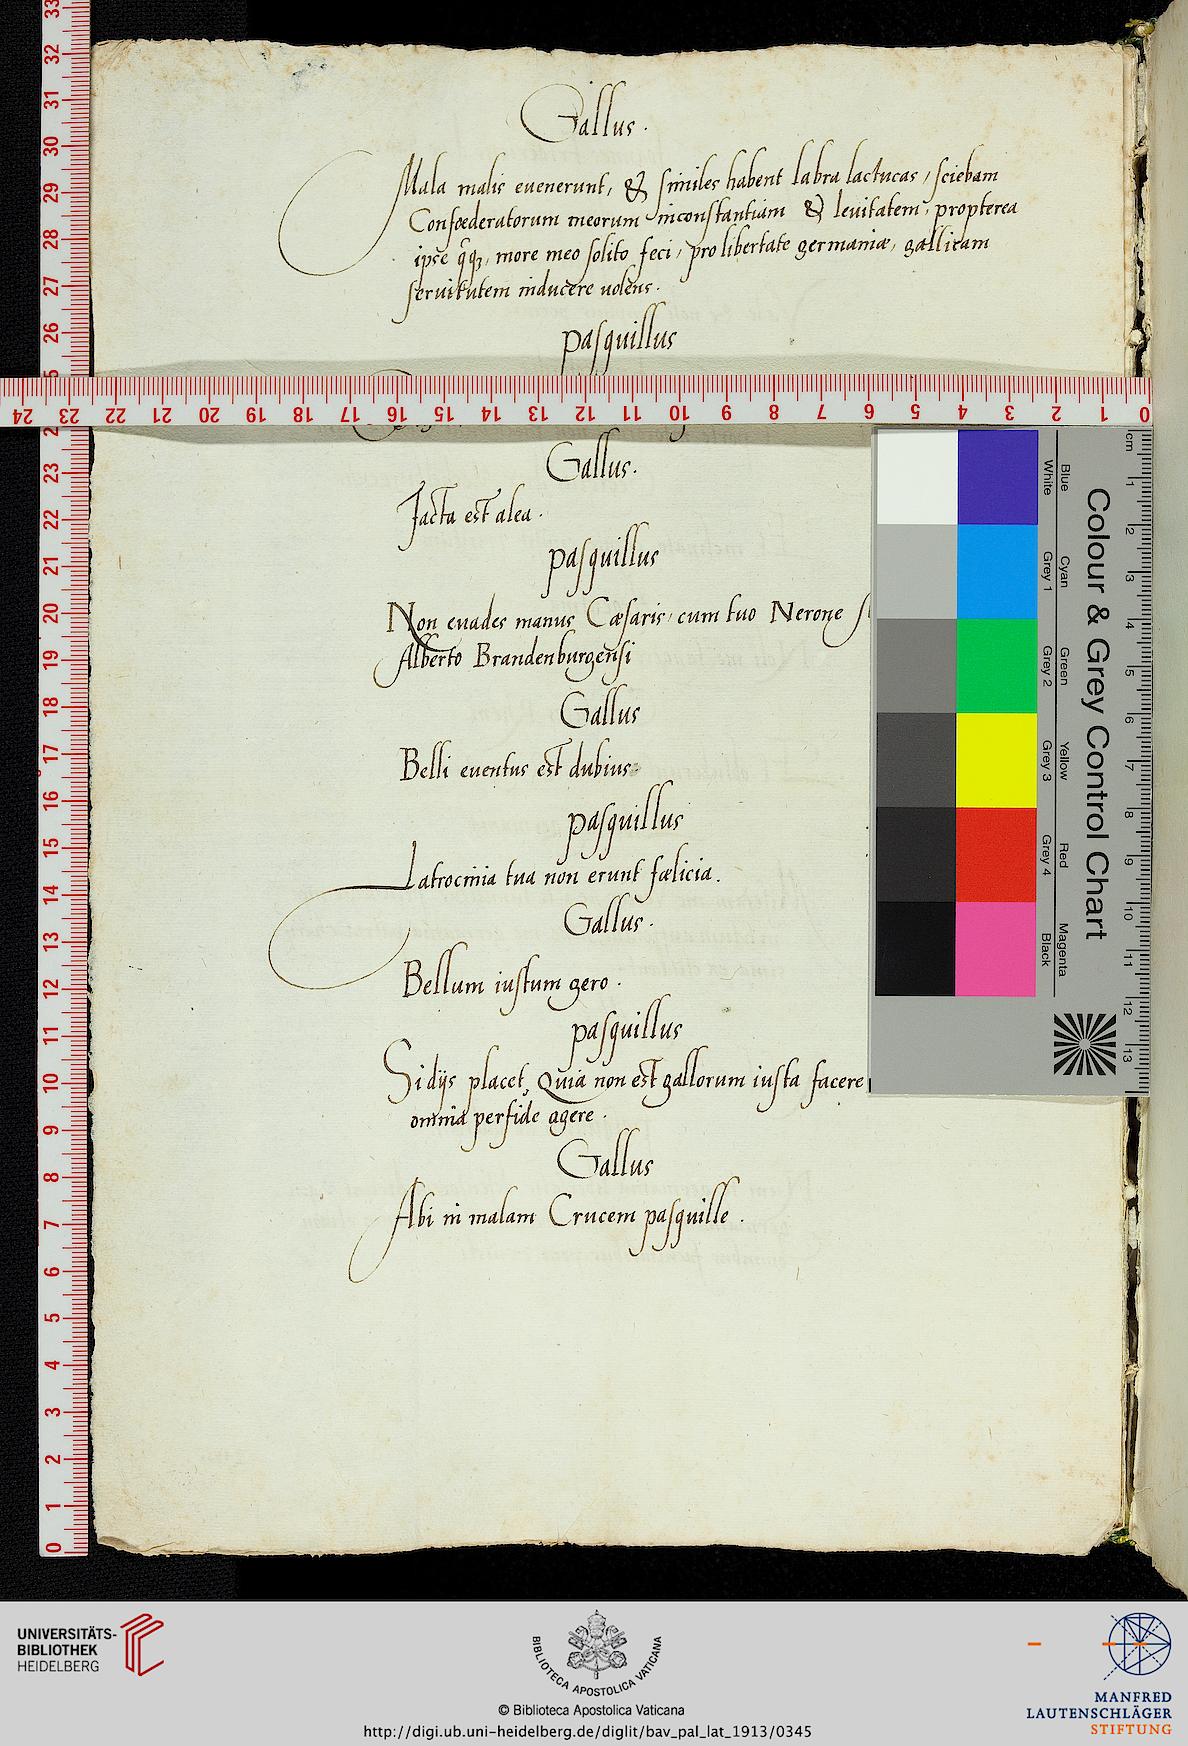 Gallus.
Mala malis euenerunt, & similes habent labra lactucas, sciebam
Confœderatorum meorum inconstantiam & leuitatem, propterea
ipse q̃q3, more meo solito feci, pro libertate germaniæ, gallicam
seruitutem inducere uolens.
pasquillus
Gallus.
Jacta est alea.
pasquillus
Non euades manus Cæsaris, cum tuo Nerone
Alberto Brandenburgensi
Gallus
Belli euentus est dubius
pasquillus
Latrocinia tua non erunt fælicia.
Gallus.
Bellum iustum gero.
pasquillus
Si dijs placet, Quia non est gallorum iusta facere
omnia perfide agere.
Gallus
Abi in malam Crucem pasquille.
33 32 31 30 29 28 27 26 25
24 23 22 21 20 19 18 17 16 15 14 13 12 11 10 9 8 7 6 5 4 3 2 1 0
23 22 21 20 19 18 17 16 15 14 13 12 11 10 9 8 7 6 5 4 3 2 1 0
Colour & Grey Control Chart
Blue Cyan Green Yellow Red Magenta
White Grey 1 Grey 2 Grey 3 Grey 4 Black
cm 1 2 3 4 5 6 7 8 9 10 11 12 13
UNIVERSITÄTS-
BIBLIOTHEK
HEIDELBERG
BIBLIOTECA APOSTOLICA VATICANA
© Biblioteca Apostolica Vaticana
http://digi.ub.uni-heidelberg.de/diglit/bav_pal_lat_1913/0345
MANFRED
LAUTENSCHLÄGER
STIFTUNG